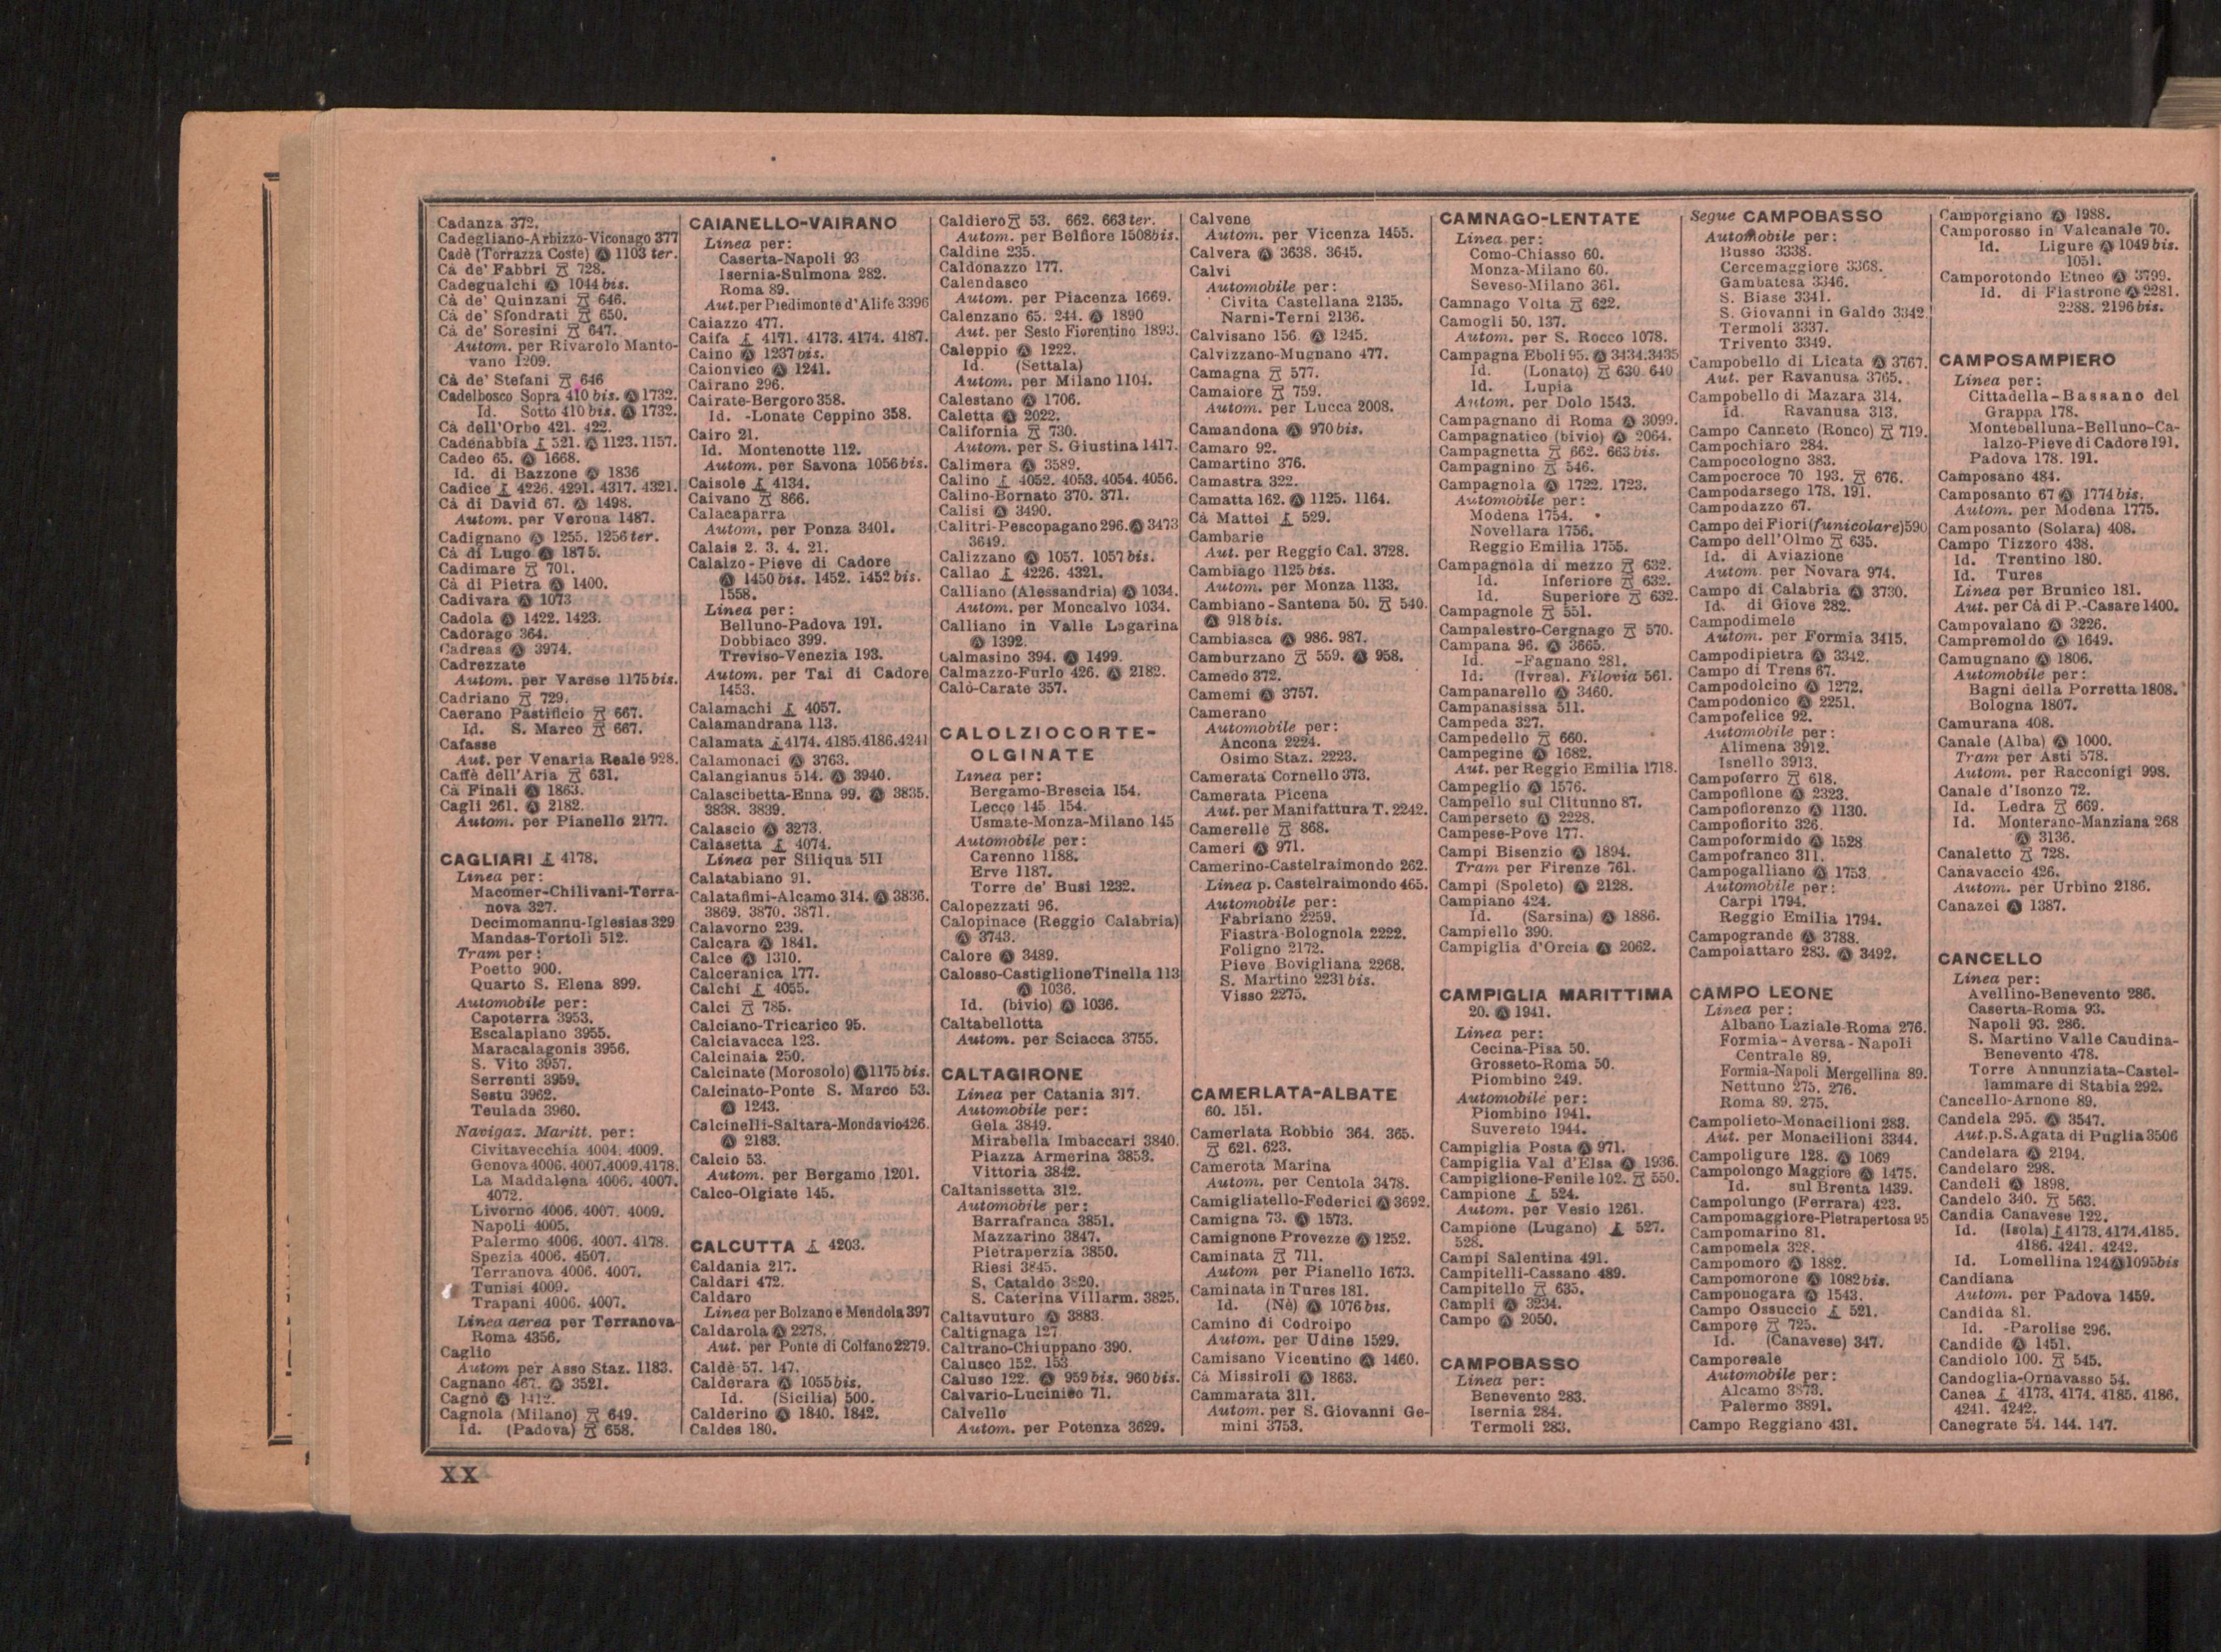 Cadanza 372.
Cadegliano-Arbizzo-Viconago 377
Cadè (Torrazza Coste) Ⓐ 1103 ter.
Cà de' Fabbri 728.
Cadegualchi Ⓐ 1044 bis.
Cà de' Quinzani 646.
Cà de' Sfondrati 650.
Cà de' Soresini 647.
Autom. per Rivarolo Manto-
vano 1209.
Cà de' Stefani 646
Cadelbosco Sopra 410 bis. Ⓐ 1732.
Id. Sotto 410 bis. Ⓐ 1732.
Cà dell'Orbo 421. 422.
Cadenabbia 521. Ⓐ 1123. 1157.
Cadeo 65. Ⓐ 1668.
Id. di Bazzone Ⓐ 1836
Cadice 4226. 4291. 4317. 4321.
Cà di David 67. Ⓐ 1498.
Autom. per Verona 1487.
Cadignano Ⓐ 1255. 1256 ter.
Cà di Lugo Ⓐ 1875.
Cadimare 701.
Cà di Pietra Ⓐ 1400.
Cadivara Ⓐ 1073
Cadola Ⓐ 1422. 1423.
Cadorago 364.
Cadreas Ⓐ 3974.
Cadrezzate
Autom. per Varese 1175 bis.
Cadriano 729.
Caerano Pastificio 667.
Id. S. Marco 667.
Cafasse
Aut. per Venaria Reale 928.
Caffè dell'Aria 631.
Cà Finali Ⓐ 1863.
Cagli 261. Ⓐ 2182.
Autom. per Pianello 2177.
CAGLIARI 4178.
Linea per:
Macomer-Chilivani-Terra-
nova 327.
Decimomannu-Iglesias 329
Mandas-Tortolì 512.
Tram per:
Poetto 900.
Quarto S. Elena 899.
Automobile per:
Capoterra 3953.
Escalaplano 3955.
Maracalagonis 3956.
S. Vito 3957.
Serrenti 3959.
Sestu 3962.
Teulada 3960.
Navigaz. Maritt. per:
Civitavecchia 4004. 4009.
Genova 4006. 4007. 4009. 4178.
La Maddalena 4006. 4007.
4072.
Livorno 4006. 4007. 4009.
Napoli 4005.
Palermo 4006. 4007. 4178.
Spezia 4006. 4507.
Terranova 4006. 4007.
Tunisi 4009.
Trapani 4006. 4007.
Linea aerea per Terranova-
Roma 4356.
Caglio
Autom per Asso Staz. 1183.
Cagnano 467. Ⓐ 3521.
Cagnò Ⓐ 1412.
Cagnola (Milano) 649.
Id. (Padova) 658.
CAIANELLO-VAIRANO
Linea per:
Caserta-Napoli 93
Isernia-Sulmona 282.
Roma 89.
Aut. per Piedimonte d'Alife 3396
Caiazzo 477.
Caifa 4171. 4173. 4174. 4187.
Caino Ⓐ 1237 bis.
Caionvico Ⓐ 1241.
Cairano 296.
Cairate-Bergoro 358.
Id. -Lonate Ceppino 358.
Cairo 21.
Id. Montenotte 112.
Autom. per Savona 1056 bis.
Caisole 4134.
Caivano 866.
Calacaparra
Autom. per Ponza 3401.
Calais 2. 3. 4. 21.
Calalzo-Pieve di Cadore
Ⓐ 1450 bis. 1452. 1452 bis.
1558.
Linea per:
Belluno-Padova 191.
Dobbiaco 399.
Treviso-Venezia 193.
Autom. per Tai di Cadore
1453.
Calamachi 4057.
Calamandrana 113.
Calamata 4174. 4185. 4186. 4241
Calamonaci Ⓐ 3763.
Calangianus 514. Ⓐ 3940.
Calascibetta-Enna 99. Ⓐ 3835.
3838. 3839.
Calascio Ⓐ 3273.
Calasetta 4074.
Linea per Siliqua 511
Calatabiano 91.
Calatafimi-Alcamo 314. Ⓐ 3836.
3869. 3870. 3871.
Calavorno 239.
Calcara Ⓐ 1841.
Calce Ⓐ 1310.
Calceranica 177.
Calchi 4055.
Calci 785.
Calciano-Tricarico 95.
Calciavacca 123.
Calcinaia 250.
Calcinate (Morosolo) Ⓐ 1175 bis.
Calcinato-Ponte S. Marco 53.
Ⓐ 1243.
Calcinelli-Saltara-Mondavio 426.
Ⓐ 2183.
Calcio 53.
Autom. per Bergamo 1201.
Calco-Olgiate 145.
CALCUTTA 4203.
Caldania 217.
Caldari 472.
Caldaro
Linea per Bolzano e Mendola 397
Caldarola Ⓐ 2278.
Aut. per Ponte di Colfano 2279.
Caldè 57. 147.
Calderara Ⓐ 1055 bis.
Id. (Sicilia) 500.
Calderino Ⓐ 1840. 1842.
Caldes 180.
Caldiero 53. 662. 663 ter.
Autom. per Belfiore 1508 bis.
Caldine 235.
Caldonazzo 177.
Calendasco
Autom. per Piacenza 1669.
Calenzano 65. 244. Ⓐ 1890
Aut. per Sesto Fiorentino 1893.
Caleppio Ⓐ 1222.
Id. (Settala)
Autom. per Milano 1104.
Calestano Ⓐ 1706.
Caletta Ⓐ 2022.
California 730.
Autom. per S. Giustina 1417.
Calimera Ⓐ 3589.
Calino 4052. 4053. 4054. 4056.
Calino-Bornato 370. 371.
Calisi Ⓐ 3490.
Calitri-Pescopagano 296. Ⓐ 3473
3649.
Calizzano Ⓐ 1057. 1057 bis.
Callao 4226. 4321.
Calliano (Alessandria) Ⓐ 1034.
Autom. per Moncalvo 1034.
Calliano in Valle Lagarina
Ⓐ 1392.
Calmasino 394. Ⓐ 1499.
Calmazzo-Furlo 426. Ⓐ 2182.
Calò-Carate 357.
CALOLZIOCORTE-
OLGINATE
Linea per:
Bergamo-Brescia 154.
Lecco 145. 154.
Usmate-Monza-Milano 145
Automobile per:
Carenno 1188.
Erve 1187.
Torre de' Busi 1232.
Calopezzati 96.
Calopinace (Reggio Calabria)
Ⓐ 3743.
Calore Ⓐ 3489.
Calosso-Castiglione Tinella 113
Ⓐ 1036.
Id. (bivio) Ⓐ 1036.
Caltabellotta
Autom. per Sciacca 3755.
CALTAGIRONE
Linea per Catania 317.
Automobile per:
Gela 3849.
Mirabella Imbaccari 3840.
Piazza Armerina 3853.
Vittoria 3842.
Caltanissetta 312.
Automobile per:
Barrafranca 3851.
Mazzarino 3847.
Pietraperzia 3850.
Riesi 3845.
S. Cataldo 3820.
S. Caterina Villarm. 3825.
Caltavuturo Ⓐ 3883.
Caltignaga 127.
Caltrano-Chiuppano 390.
Calusco 152. 153
Caluso 122. Ⓐ 959 bis. 960 bis.
Calvario-Lucinico 71.
Calvello
Autom. per Potenza 3629.
Calvene
Autom. per Vicenza 1455.
Calvera Ⓐ 3638. 3645.
Calvi
Automobile per:
Civita Castellana 2135.
Narni-Terni 2136.
Calvisano 156. Ⓐ 1245.
Calvizzano-Mugnano 477.
Camagna 577.
Camaiore 759.
Autom. per Lucca 2008.
Camandona Ⓐ 970 bis.
Camaro 92.
Camartino 376.
Camastra 322.
Camatta 162. Ⓐ 1125. 1164.
Cà Mattei 529.
Cambarie
Aut. per Reggio Cal. 3728.
Cambiago 1125 bis.
Autom. per Monza 1133.
Cambiano-Santena 50. 540.
Ⓐ 918 bis.
Cambiasca Ⓐ 986. 987.
Camburzano 559. Ⓐ 958.
Camedo 372.
Camemi Ⓐ 3757.
Camerano
Automobile per:
Ancona 2224.
Osimo Staz. 2223.
Camerata Cornello 373.
Camerata Picena
Aut. per Manifattura T. 2242.
Camerelle 868.
Cameri Ⓐ 971.
Camerino-Castelraimondo 262.
Linea p. Castelraimondo 465.
Automobile per:
Fabriano 2259.
Fiastra-Bolognola 2222.
Foligno 2172.
Pieve Bovigliana 2268.
S. Martino 2231 bis.
Visso 2275.
CAMERLATA-ALBATE
60. 151.
Camerlata Robbio 364. 365.
621. 623.
Camerota Marina
Autom. per Centola 3478.
Camigliatello-Federici Ⓐ 3692.
Camigna 73. Ⓐ 1573.
Camignone Provezze Ⓐ 1252.
Caminata 711.
Autom per Pianello 1673.
Caminata in Tures 181.
Id. (Nè) Ⓐ 1076 bis.
Camino di Codroipo
Autom. per Udine 1529.
Camisano Vicentino Ⓐ 1460.
Cà Missiroli Ⓐ 1863.
Cammarata 311.
Autom. per S. Giovanni Ge-
mini 3753.
CAMNAGO-LENTATE
Linea per:
Como-Chiasso 60.
Monza-Milano 60.
Seveso-Milano 361.
Camnago Volta 622.
Camogli 50. 137.
Autom. per S. Rocco 1078.
Campagna Eboli 95. Ⓐ 3434. 3435
Id. (Lonato) 630. 640
Id. Lupia
Autom. per Dolo 1543.
Campagnano di Roma Ⓐ 3099.
Campagnatico (bivio) Ⓐ 2064.
Campagnetta 662. 663 bis.
Campagnino 546.
Campagnola Ⓐ 1722. 1723.
Automobile per:
Modena 1754.
Novellara 1756.
Reggio Emilia 1755.
Campagnola di mezzo 632.
Id. Inferiore 632.
Id. Superiore 632.
Campagnole 551.
Campalestro-Cergnago 570.
Campana 96. Ⓐ 3665.
Id. -Fagnano 281.
Id. (Ivrea). Filovia 561.
Campanarello Ⓐ 3460.
Campanasissa 511.
Campeda 327.
Campedello 660.
Campegine Ⓐ 1682.
Aut. per Reggio Emilia 1718.
Campeglio Ⓐ 1576.
Campello sul Clitunno 87.
Camperseto Ⓐ 2228.
Campese-Pove 177.
Campi Bisenzio Ⓐ 1894.
Tram per Firenze 761.
Campi (Spoleto) Ⓐ 2128.
Campiano 424.
Id. (Sarsina) Ⓐ 1886.
Campiello 390.
Campiglia d'Orcia Ⓐ 2062.
CAMPIGLIA MARITTIMA
20. Ⓐ 1941.
Linea per:
Cecina-Pisa 50.
Grosseto-Roma 50.
Piombino 249.
Automobile per:
Piombino 1941.
Suvereto 1944.
Campiglia Posta Ⓐ 971.
Campiglia Val d'Elsa Ⓐ 1936.
Campiglione-Fenile 102. 550.
Campione 524.
Autom. per Vesio 1261.
Campione (Lugano) 527.
528.
Campi Salentina 491.
Campitelli-Cassano 489.
Campitello 635.
Campli Ⓐ 3234.
Campo Ⓐ 2050.
CAMPOBASSO
Linea per:
Benevento 283.
Isernia 284.
Termoli 283.
Segue CAMPOBASSO
Automobile per:
Busso 3338.
Cercemaggiore 3368.
Gambatesa 3346.
S. Biase 3341.
S. Giovanni in Galdo 3342
Termoli 3337.
Trivento 3349.
Campobello di Licata Ⓐ 3767.
Aut. per Ravanusa 3765.
Campobello di Mazara 314.
id. Ravanusa 313.
Campo Canneto (Ronco) 719.
Campochiaro 284.
Campocologno 383.
Campocroce 70 193. 676.
Campodarsego 178. 191.
Campodazzo 67.
Campo dei Fiori (funicolare) 590
Campo dell'Olmo 635.
Id. di Aviazione
Autom. per Novara 974.
Campo di Calabria Ⓐ 3730.
Id. di Giove 282.
Campodimele
Autom. per Formia 3415.
Campodipietra Ⓐ 3342.
Campo di Trens 67.
Campodolcino Ⓐ 1272.
Campodonico Ⓐ 2251.
Campofelice 92.
Automobile per:
Alimena 3912.
Isnello 3913.
Campoferro 618.
Campofilone Ⓐ 2323.
Campoflorenzo Ⓐ 1130.
Campofiorito 326.
Campoformido Ⓐ 1528
Campofranco 311.
Campogalliano Ⓐ 1753
Automobile per:
Carpi 1794.
Reggio Emilia 1794.
Campogrande Ⓐ 3788.
Campolattaro 283. Ⓐ 3492.
CAMPO LEONE
Linea per:
Albano Laziale-Roma 276.
Formia-Aversa-Napoli
Centrale 89.
Formia-Napoli Mergellina 89.
Nettuno 275. 276.
Roma 89. 275.
Campolieto-Monacilioni 283.
Aut. per Monacilioni 3344.
Campoligure 128. Ⓐ 1069
Campolongo Maggiore Ⓐ 1475.
Id. sul Brenta 1439.
Campolungo (Ferrara) 423.
Campomaggiore-Pietrapertosa 95
Campomarino 81.
Campomela 328.
Campomoro Ⓐ 1882.
Campomorone Ⓐ 1082 bis.
Camponogara Ⓐ 1543.
Campo Ossuccio 521.
Campore 725.
Id. (Canavese) 347.
Camporeale
Automobile per:
Alcamo 3873.
Palermo 3891.
Campo Reggiano 431.
Camporgiano Ⓐ 1988.
Camporosso in Valcanale 70.
Id. Ligure Ⓐ 1049 bis.
1051.
Camporotondo Etneo Ⓐ 3799.
Id. di Fiastrone Ⓐ 2281.
2288. 2196 bis.
CAMPOSAMPIERO
Linea per:
Cittadella-Bassano del
Grappa 178.
Montebelluna-Belluno-Ca-
lalzo-Pieve di Cadore 191.
Padova 178. 191.
Camposano 484.
Camposanto 67 Ⓐ 1774 bis.
Autom. per Modena 1775.
Camposanto (Solara) 408.
Campo Tizzoro 438.
Id. Trentino 180.
Id. Tures
Linea per Brunico 181.
Aut. per Cà di P.-Casare 1400.
Campovalano Ⓐ 3226.
Campremoldo Ⓐ 1649.
Camugnano Ⓐ 1806.
Automobile per:
Bagni della Porretta 1808.
Bologna 1807.
Camurana 408.
Canale (Alba) Ⓐ 1000.
Tram per Asti 578.
Autom. per Racconigi 998.
Canale d'Isonzo 72.
Id. Ledra 669.
Id. Monterano-Manziana 268
Ⓐ 3136.
Canaletto 728.
Canavaccio 426.
Autom. per Urbino 2186.
Canazei Ⓐ 1387.
CANCELLO
Linea per:
Avellino-Benevento 286.
Caserta-Roma 93.
Napoli 93. 286.
S. Martino Valle Caudina-
Benevento 478.
Torre Annunziata-Castel-
lammare di Stabia 292.
Cancello-Arnone 89.
Candela 295. Ⓐ 3547.
Aut. p. S. Agata di Puglia 3506
Candelara Ⓐ 2194.
Candelaro 298.
Candeli Ⓐ 1898.
Candelo 340. 563.
Candia Canavese 122.
Id. (Isola) 4173. 4174. 4185.
4186. 4241. 4242.
Id. Lomellina 124 Ⓐ 1095 bis
Candiana
Autom. per Padova 1459.
Candida 81.
Id. -Parolise 296.
Candide Ⓐ 1451.
Candiolo 100. 545.
Candoglia-Ornavasso 54.
Canea 4173. 4174. 4185. 4186.
4241. 4242.
Canegrate 54. 144. 147.
XX